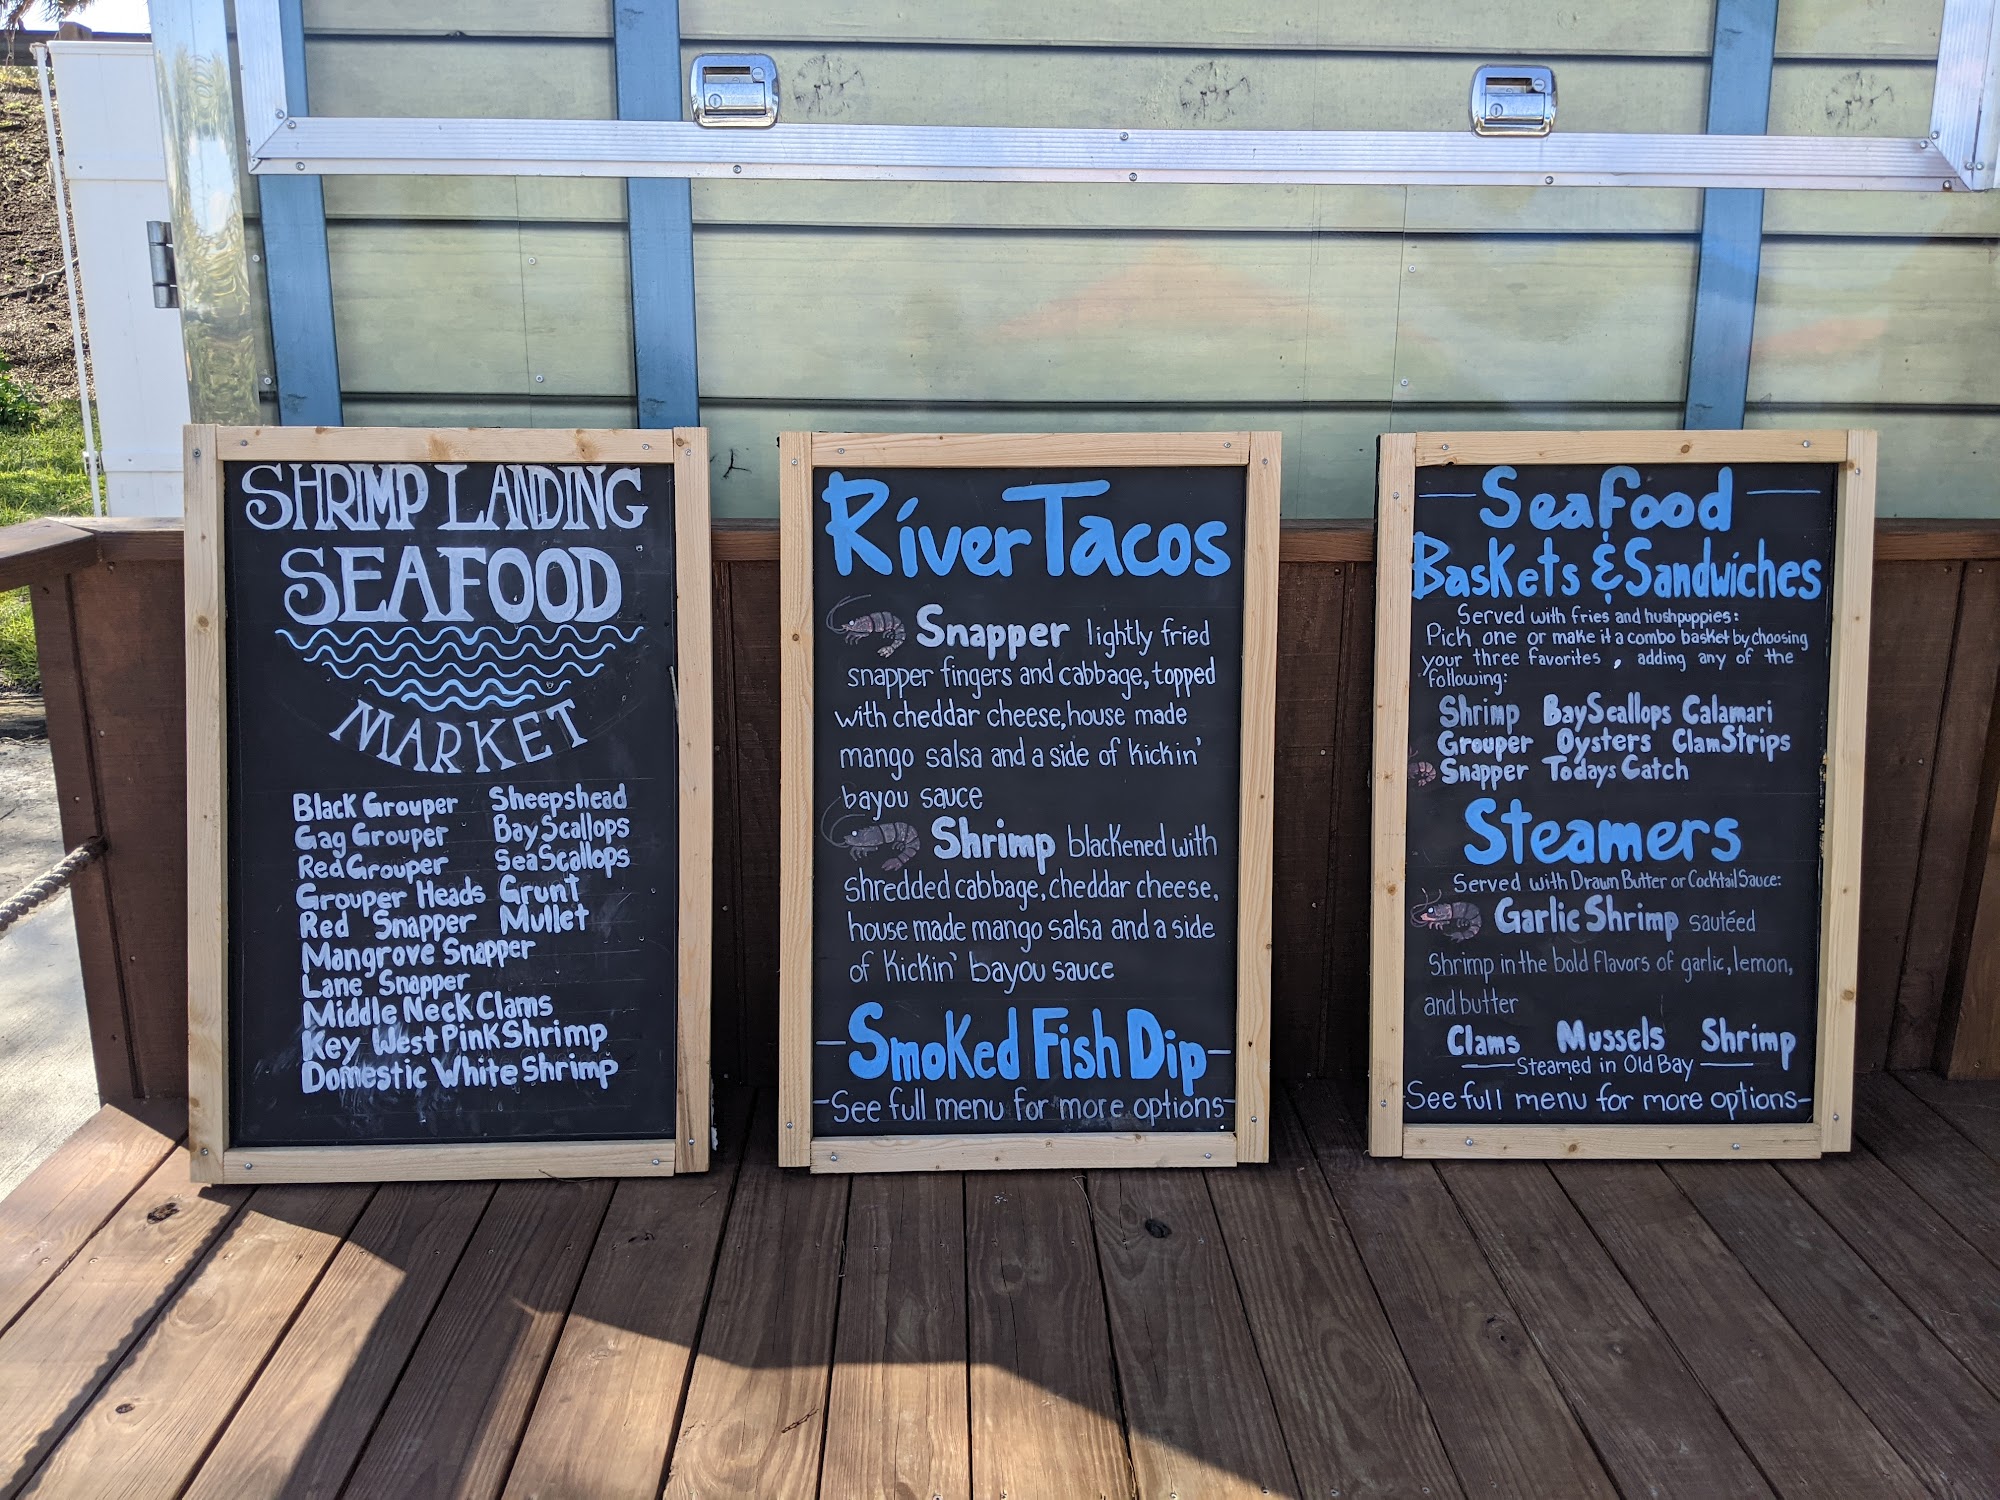 SHRIMP LANDING
SEAFOOD
MARKET
Black Grouper Sheepshead
Gag Grouper Bay Scallops
Red Grouper Sea Scallops
Grouper Heads Grunt
Red Snapper Mullet
Mangrove Snapper
Lane Snapper
Middle Neck Clams
Key West Pink Shrimp
Domestic White Shrimp
River Tacos
Snapper lightly fried
snapper fingers and cabbage, topped
with cheddar cheese, house made
mango salsa and a side of kickin'
bayou sauce
Shrimp blackened with
shredded cabbage, cheddar cheese,
house made mango salsa and a side
of kickin' bayou sauce
Smoked Fish Dip
-See full menu for more options-
Seafood
Baskets & Sandwiches
Served with fries and hushpuppies:
Pick one or make it a combo basket by choosing
your three favorites, adding any of the
following:
Shrimp Bay Scallops Calamari
Grouper Oysters Clam Strips
Snapper Todays Catch
Steamers
Served with Drawn Butter or Cocktail Sauce:
Garlic Shrimp sautéed
Shrimp in the bold flavors of garlic, lemon,
and butter
Clams Mussels Shrimp
Steamed in Old Bay
-See full menu for more options-